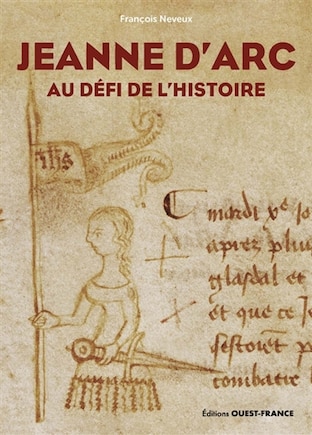 François Neveux
JEANNE D'ARC
AU DÉFI DE L'HISTOIRE
JHS
C mardi xe jo
aprez plui
glasdal et
et que ce J
sestoient p
combatre l
Éditions OUEST-FRANCE